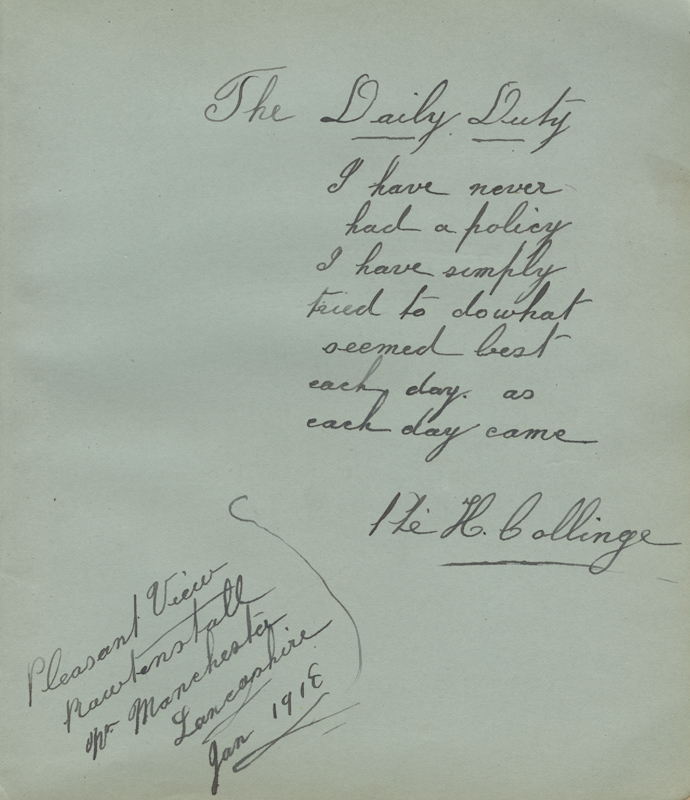 The Daily Duty
I have never
had a policy
I have simply
tried to do what
seemed best
each day. as
each day came
Pte H. Collinge
Pleasant View
Rawtenstall
Nr Manchester
Lancashire
Jan